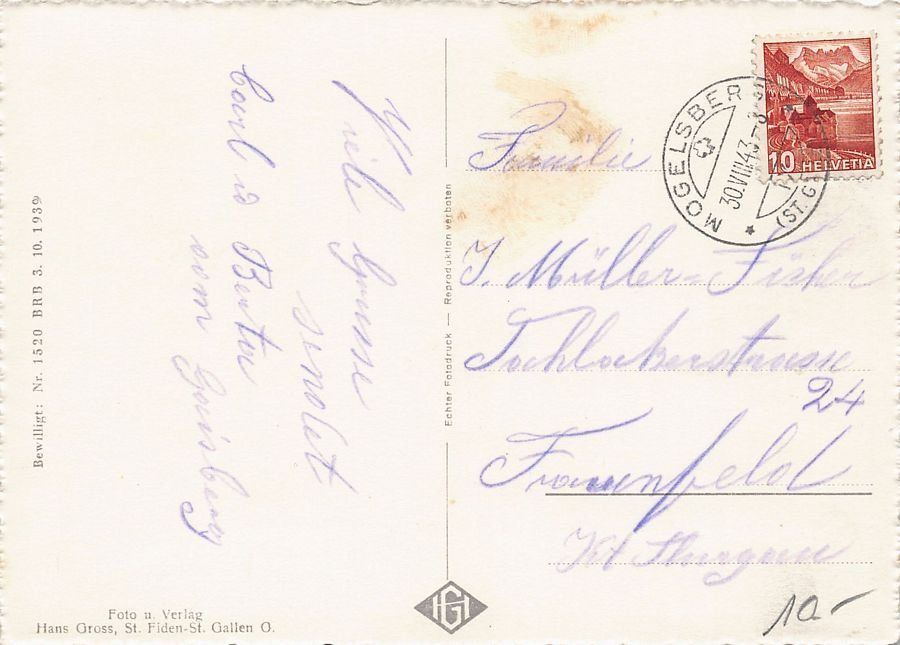 Viele Grüsse
sendet
Carl u Bertie
vom Gaisberg
Bewilligt: Nr. 1520 BRB 3. 10. 1939
Foto u. Verlag
Hans Gross, St. Fiden-St. Gallen O.
Echter Fotodruck — Reproduktion verboten
HG
MOGELSBERG
30.VIII.43.-8
(ST. G
10 HELVETIA
Familie
J. Müller-Fischer
24
Frauenfeld
Kt Thurgau
10.-